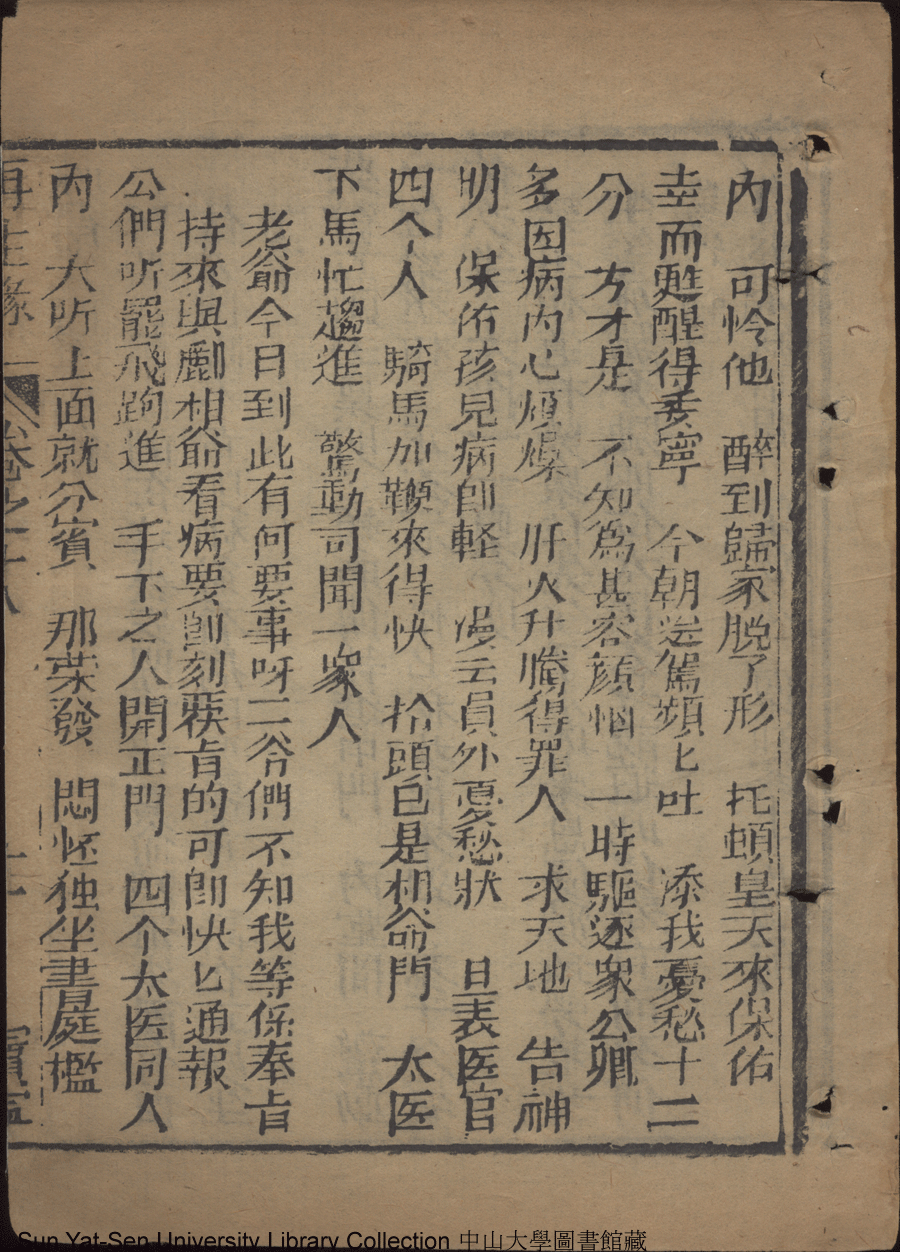 內　可怜他　醉到歸家脱了形　托頼皇天來保佑
幸而甦醒得委寧　今朝送駕頻匕吐　添我憂愁十二
分　方才是　不知為甚容顔惱　一時驅逐衆公卿
多因病内心煩燥　肝火升騰得罪人　求天地　告神
明　保佑孩兒病卽軽　慢云員外憂愁狀　且表医官
四个人　騎馬加鞭來得快　抬頭已是相爺門　太医
下馬忙趨進　驚動司閽一衆人
老爺今日到此有何要事呀二爷們不知我等係奉㫖
持來與酈相爺看病要卽刻覆㫖的可卽快匕通報
公們听罷飛跑進　手下之人開正門　四个太医同入
內　大听上面就分賓　那荣發　悶怀独坐書庭檻
再生緣　卷之十八
Sun Yat-Sen University Library Collection 中山大學圖書館藏